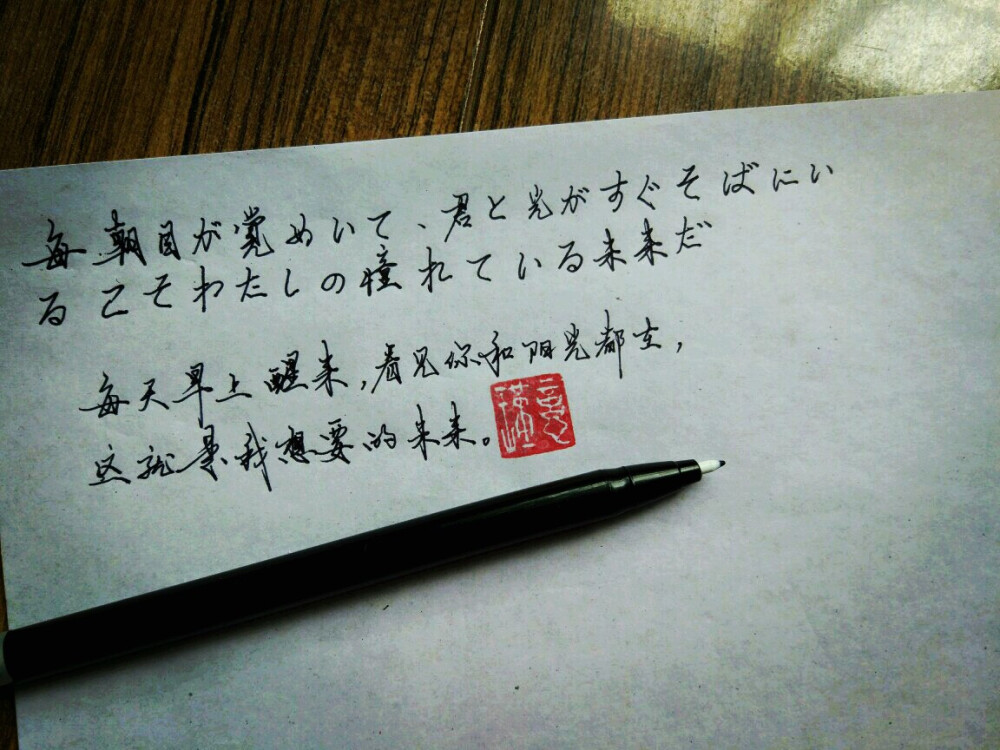 每朝目が覚めいて、君と光がすぐそばにい
るこそわたしの憧れている未来だ
每天早上醒来,看见你和阳光都在,
这就是我想要的未来。